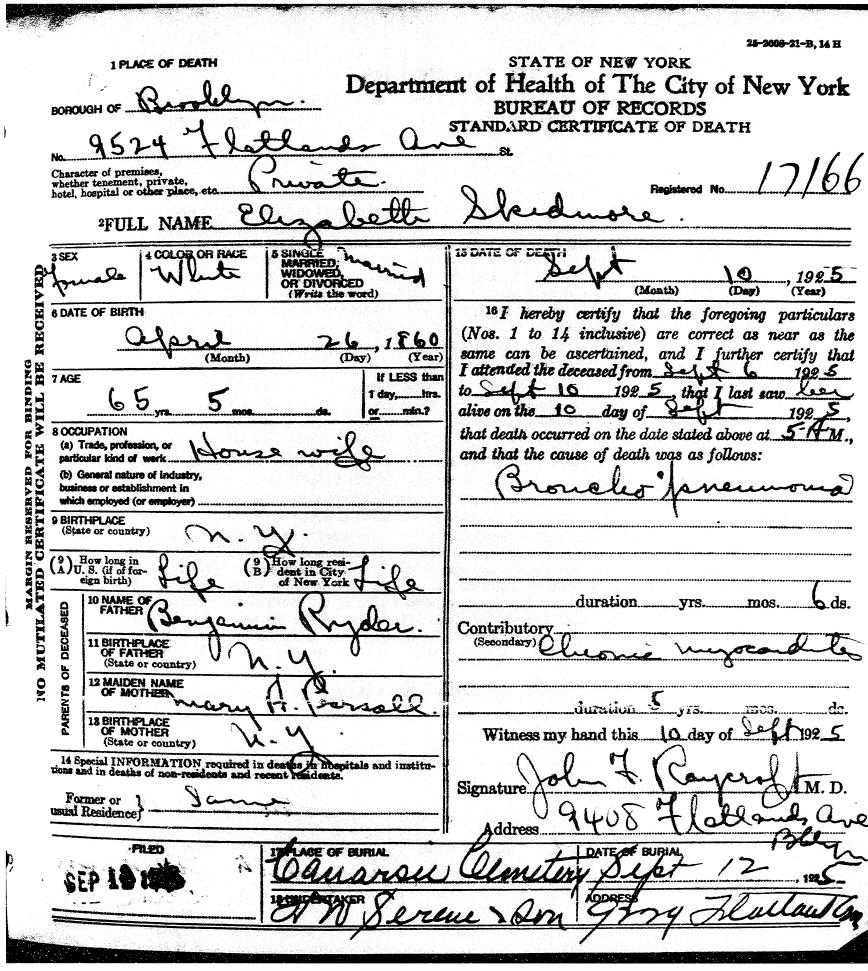 25-2606-21-B, 14 H
1 PLACE OF DEATH
STATE OF NEW YORK
Department of Health of The City of New York
BUREAU OF RECORDS
STANDARD CERTIFICATE OF DEATH
BOROUGH OF Brooklyn.
No. 9524 Flatlands Ave St.
Character of premises,
whether tenement, private,
hotel, hospital or other place, etc. Private.
Registered No. 17166
2 FULL NAME Elizabeth Skidmore.
MARGIN RESERVED FOR BINDING
NO MUTILATED CERTIFICATE WILL BE RECEIVED
3 SEX
female
4 COLOR OR RACE
White
5 SINGLE
MARRIED,
WIDOWED,
OR DIVORCED
(Write the word)
married
6 DATE OF BIRTH
April 26, 1860
(Month) (Day) (Year)
7 AGE
65 yrs. 5 mos. ds.
If LESS than
1 day, hrs.
or min.?
8 OCCUPATION
(a) Trade, profession, or
particular kind of work House wife
(b) General nature of industry,
business or establishment in
which employed (or employer)
9 BIRTHPLACE
(State or country) N.Y.
(9 A) How long in
U. S. (if of for-
eign birth) Life
(9 B) How long resi-
dent in City
of New York Life
PARENTS OF DECEASED
10 NAME OF
FATHER Benjamin Ryder.
11 BIRTHPLACE
OF FATHER
(State or country) N.Y.
12 MAIDEN NAME
OF MOTHER Mary A. Pearsall.
13 BIRTHPLACE
OF MOTHER
(State or country) N.Y.
14 Special INFORMATION required in deaths in hospitals and institu-
tions and in deaths of non-residents and recent residents.
Former or
usual Residence} Same
15 DATE OF DEATH
Sept 10, 1925
(Month) (Day) (Year)
16 I hereby certify that the foregoing particulars
(Nos. 1 to 14 inclusive) are correct as near as the
same can be ascertained, and I further certify that
I attended the deceased from Sept 6 1925
to Sept 10 1925, that I last saw her
alive on the 10 day of Sept 1925,
that death occurred on the date stated above at 5 A M.,
and that the cause of death was as follows:
Broncho pneumonia
duration yrs. mos. 6 ds.
Contributory
(Secondary) Chronic myocarditis
duration 5 yrs. mos. ds.
Witness my hand this 10 day of Sept 1925
Signature John F. Raycroft M. D.
Address 9408 Flatlands Ave
Bklyn
FILED
SEP
17 PLACE OF BURIAL
Canarsie Cemetery
DATE OF BURIAL
Sept 12, 1925
18 UNDERTAKER
Serene & Son
ADDRESS